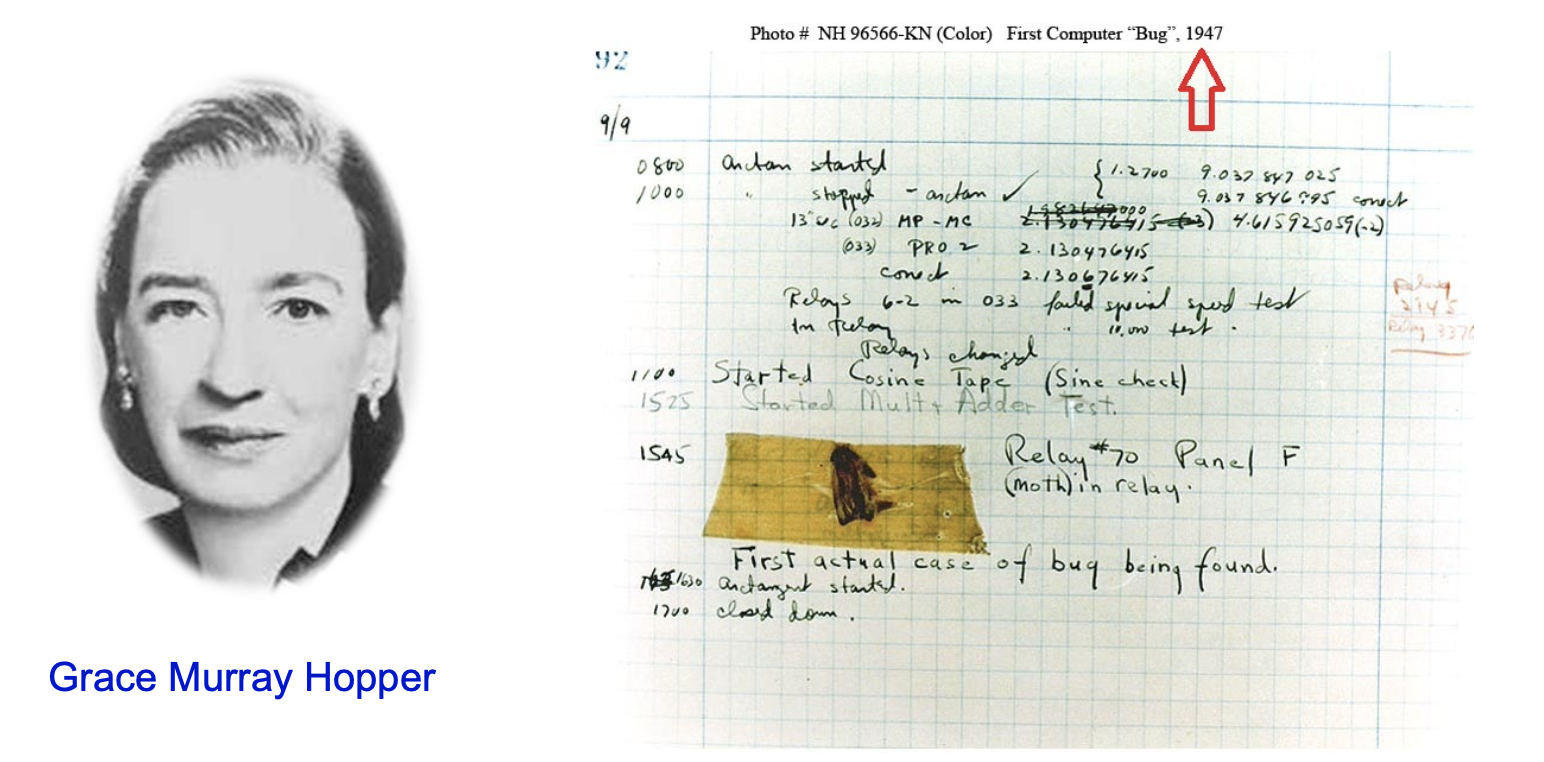 Photo # NH 96566-KN (Color) First Computer "Bug", 1947
92
9/9
0800 Antan started
1000 " stopped - antan ✓ { 1.2700 9.037 847 025
9.037 846 995 conect
13"uc (032) MP - MC 4.615925059(-2)
(033) PRO 2 2.130476415
conect 2.130676415
Relays 6-2 in 033 failed special speed test
In Relay " 10.000 test .
Relays changed
Relay
2145
Relay 3370
1100 Started Cosine Tape (Sine check)
1525 Started Mult + Adder Test.
1545 Relay #70 Panel F
(moth) in relay.
First actual case of bug being found.
1630 Antangent started.
1700 closed down .
Grace Murray Hopper